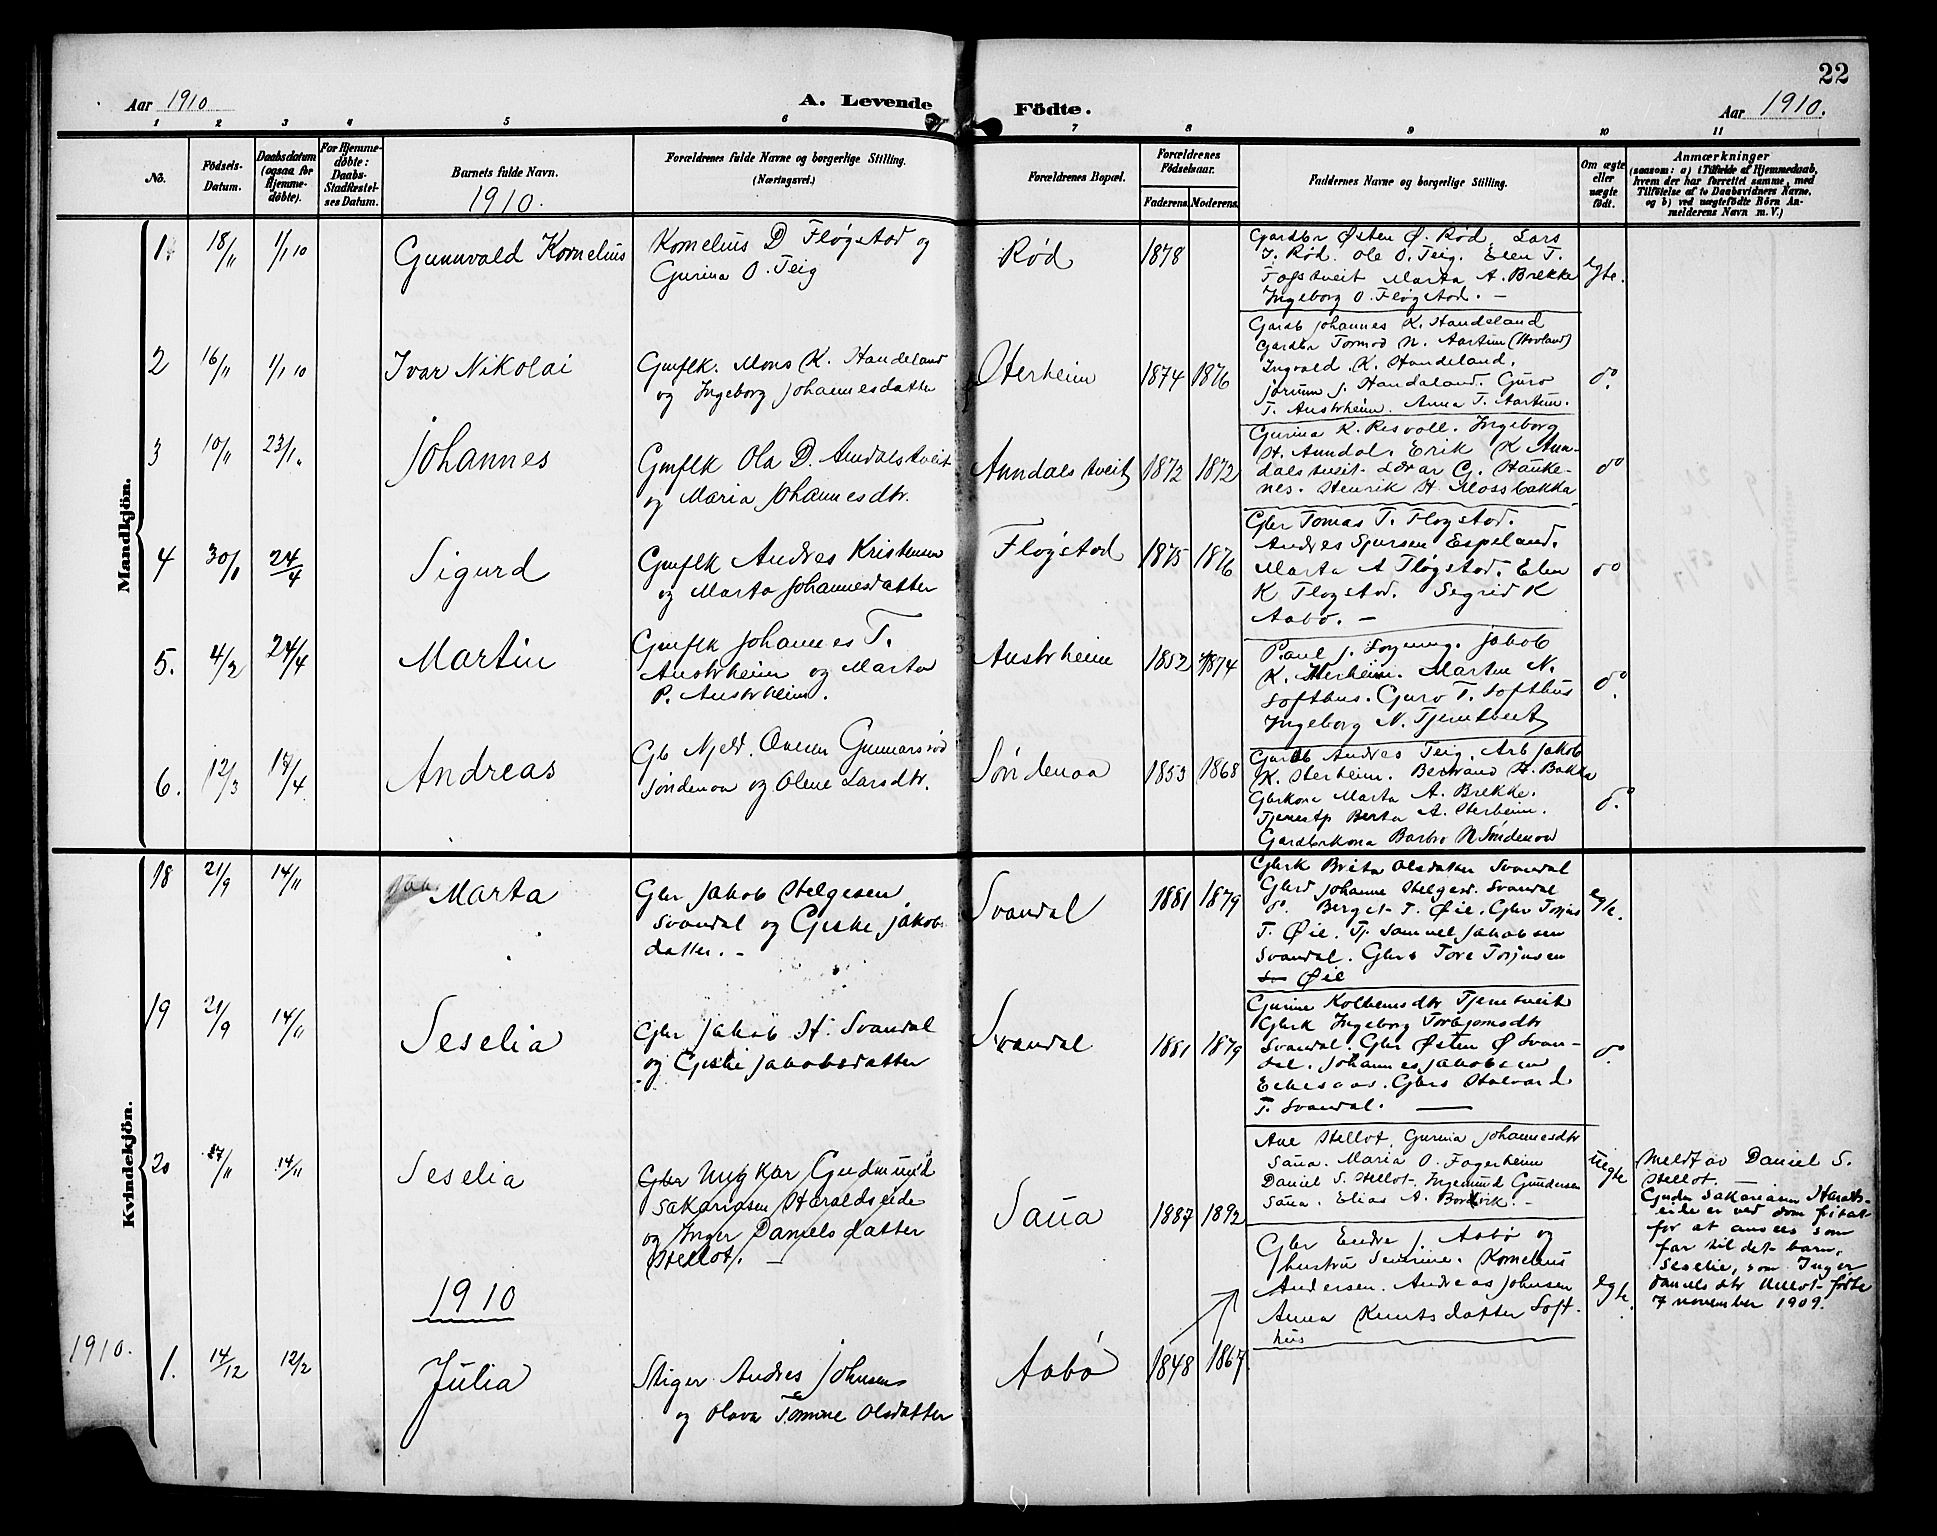 22
Aar 1910
A. Levende Födte.
Aar 1910.
1 2 3 4 5 6 7 8 9 10 11
No.
Födsels-Datum.
Daabsdatum (ogsaa for Hjemme-döbte).
For Hjemme-döbte: Daabs-Stadfæstel-ses Datum.
Barnets fulde Navn.
1910.
Forældrenes fulde Navne og borgerlige Stilling.
(Næringsvei.)
Forældrenes Bopæl.
Forældrenes Födselsaar.
Faderens. Moderens.
Faddernes Navne og borgerlige Stilling.
Om ægte eller uægte födt.
Anmærkninger
(saasom: a) i Tilfælde af Hjemmedaab,
hvem der har forrettet samme, med
Tilföielse af to Daabsvidners Navne,
og b) ved uægtefödte Börn An-
melderens Navn m. V.)
Mandkjön.
1. 18/11 1/1 10 Gunnvald Kornelius
Kornelius D Fløgstad og
Gurina O. Teig
Rød 1878
Gardbr Østen Ø. Rød. Lars
I. Rød. Ole O. Teig. Elen T.
Marta A. Brekke
Ingeborg O. Fløgstad. –
2 16/11 1/1 10 Ivar Nikolai
Gmflk. Mons K. Handeland
og Ingeborg Johannesdatter
Sterheim 1874 1876
Gardb Johannes K. Handeland
Gardbr Tormod N. Aartun (Hovland)
Ingvald K. Handeland.
Jorunn J. Handeland. Guro
T. Austrheim. Anna T. Aartun.
do
3 10/11 23/1 Johannes
Gmflk Ola D. Amdalstveit
og Maria Johannesdtr.
Amdalstveit 1872 1872
Gurina K. Risvoll. Ingeborg
H. Amdal. Erik K Am-
dalstveit. Ivar G. Hauke-
nes. Henrik H. Mossbakka
do
4 24/4 Sigurd
Gmflk Andres Kristensen
og Marta Johannesdatter
Fløgstad 1875 1876
Gbr Tomas T. Fløgstad.
Andres Sjursen Espeland.
Marta A Fløgstad. Elen
K Fløgstad. Sigrid K
Aabø. –
do
5. 4/2 24/4 Martin
Gmflk Johannes T.
Austrheim og Marta
P. Austrheim.
Austrheim 1852 1874
Paul J. Jakob
K. Sterheim. Martin N.
Softhus. Guro T. Softhus
Ingeborg N. Tjemtveit
do
6. 12/3 17/4 Andreas
Gb Njeld. Gunnarsrød
Søndenaa og Olene Larsdtr.
Søndenaa 1853 1868
Gardb Andres Teig. Arb Jakob
K. Sterheim. Bertrand H. Bakka
Gbrkone Marta A. Brekke.
Tjenestp Berta A. Sterheim.
Gardbrkona Barbro N Søndenaa
do
Kvindekjön.
18 21/9 14/11 Marta
Gbr Jakob Helgesen
Svandal og Giske Jakobs
datter. –
Svandal 1881 1879
Gbrk Brita Olsdatter Svandal
Gbrd Johanne Helgesd. Svandal
do. Berget T. Øie. Gbr Torjus
T. Øie. Tj. Samuel Jakobsen
Svandal. Gbrs Tore Torjusen
Øie
egte.
19 21/9 14/11 Seselia
Gbr Jakob H. Svandal
og Giske Jakobsdatter
Svandal 1881 1879
Gurine Kolbensdtr Tjemtveit
Gbrk Ingeborg Torbjørnsdtr
Svandal. Gbr Østen Ø Svan-
dal. Johannes Jakobsen
Gbrs Halvard
T. Svandal. –
do
20 14/11 Seselia
Gbr Ungkar Gudmund
Sakariasen Haraldseide
og Inger Danielsdatter
Hellot. –
Saua 1887 1892
Ane Hellot. Gurina Johannesdtr
Saua. Maria O. Fagerheim
Daniel S. Hellot. Ingemund Gundersen
Saua. Elias A. Borkvik. –
uegte
Meldt av Daniel S.
Hellot. –
Gudm Sakariasen Haralds-
eide er ved dom
for at ansees som
far til det barn,
Seselie, som Inger
Danielsdtr Hellot fødte
7 november 1909.
1910
1910. 1. 14/12 12/2 Julia
Stiger Andres Johnsen
og Olava Tomine Olsdatter
Aabø 1848 1867.
Gbr Endre J. Aabø og
hustru Severine. Kornelius
Andersen. Andreas Johnsen
Anna Knutsdatter Soft-
hus
egte.